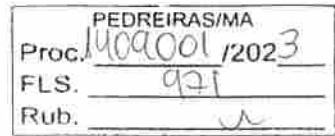 PEDREIRAS/MA
Proc. 1409001 /2023
FLS. 971
Rub.